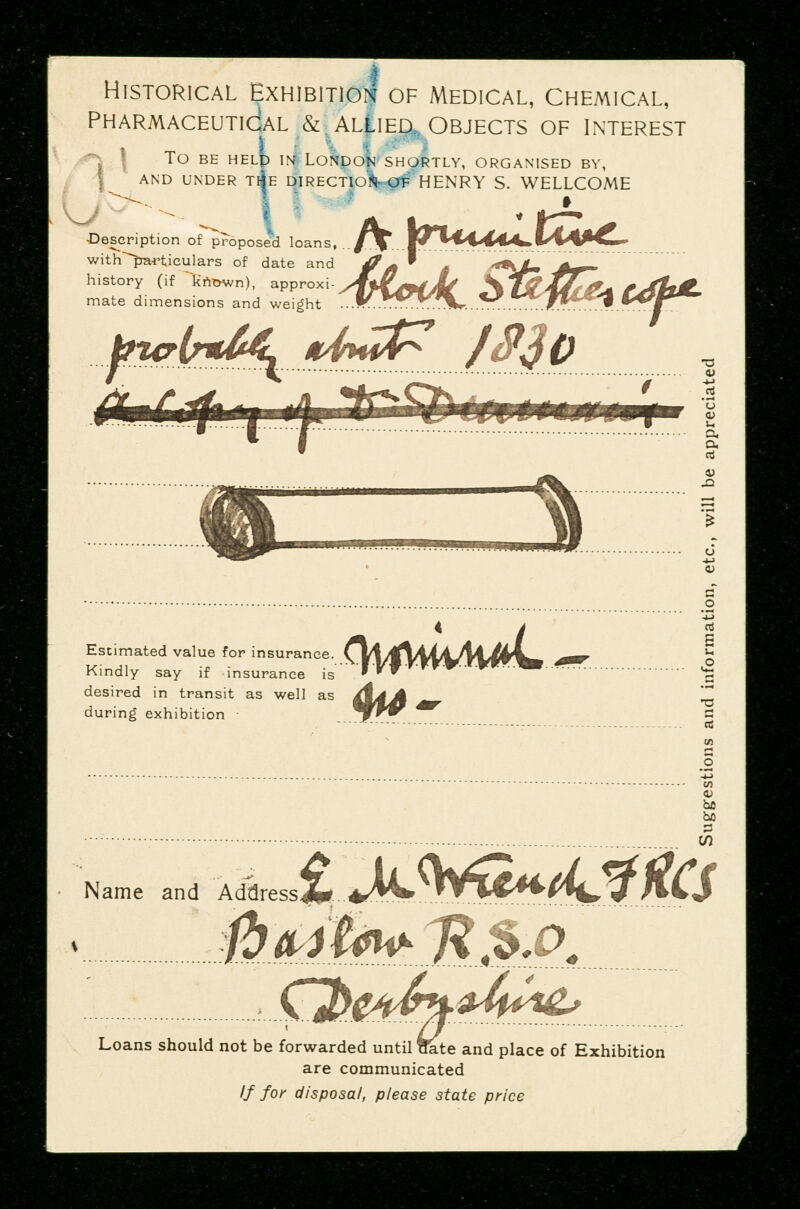 HISTORICAL EXHIBITION OF MEDICAL, CHEMICAL,
PHARMACEUTICAL & ALLIED OBJECTS OF INTEREST
TO BE HELD IN LONDON SHORTLY, ORGANISED BY,
AND UNDER THE DIRECTION OF HENRY S. WELLCOME
Description of proposed loans, A primitive
with particulars of date and
history (if known), approxi- block Stethescope
mate dimensions and weight
probably about 1830
a copy of Dr
Estimated value for insurance. Nominal -
Kindly say if insurance is
desired in transit as well as No -
during exhibition
Name and Address E M Wrench FRCS
Baslow R.S.O.
Derbyshire
Loans should not be forwarded until date and place of Exhibition
are communicated
If for disposal, please state price
Suggestions and information, etc., will be appreciated